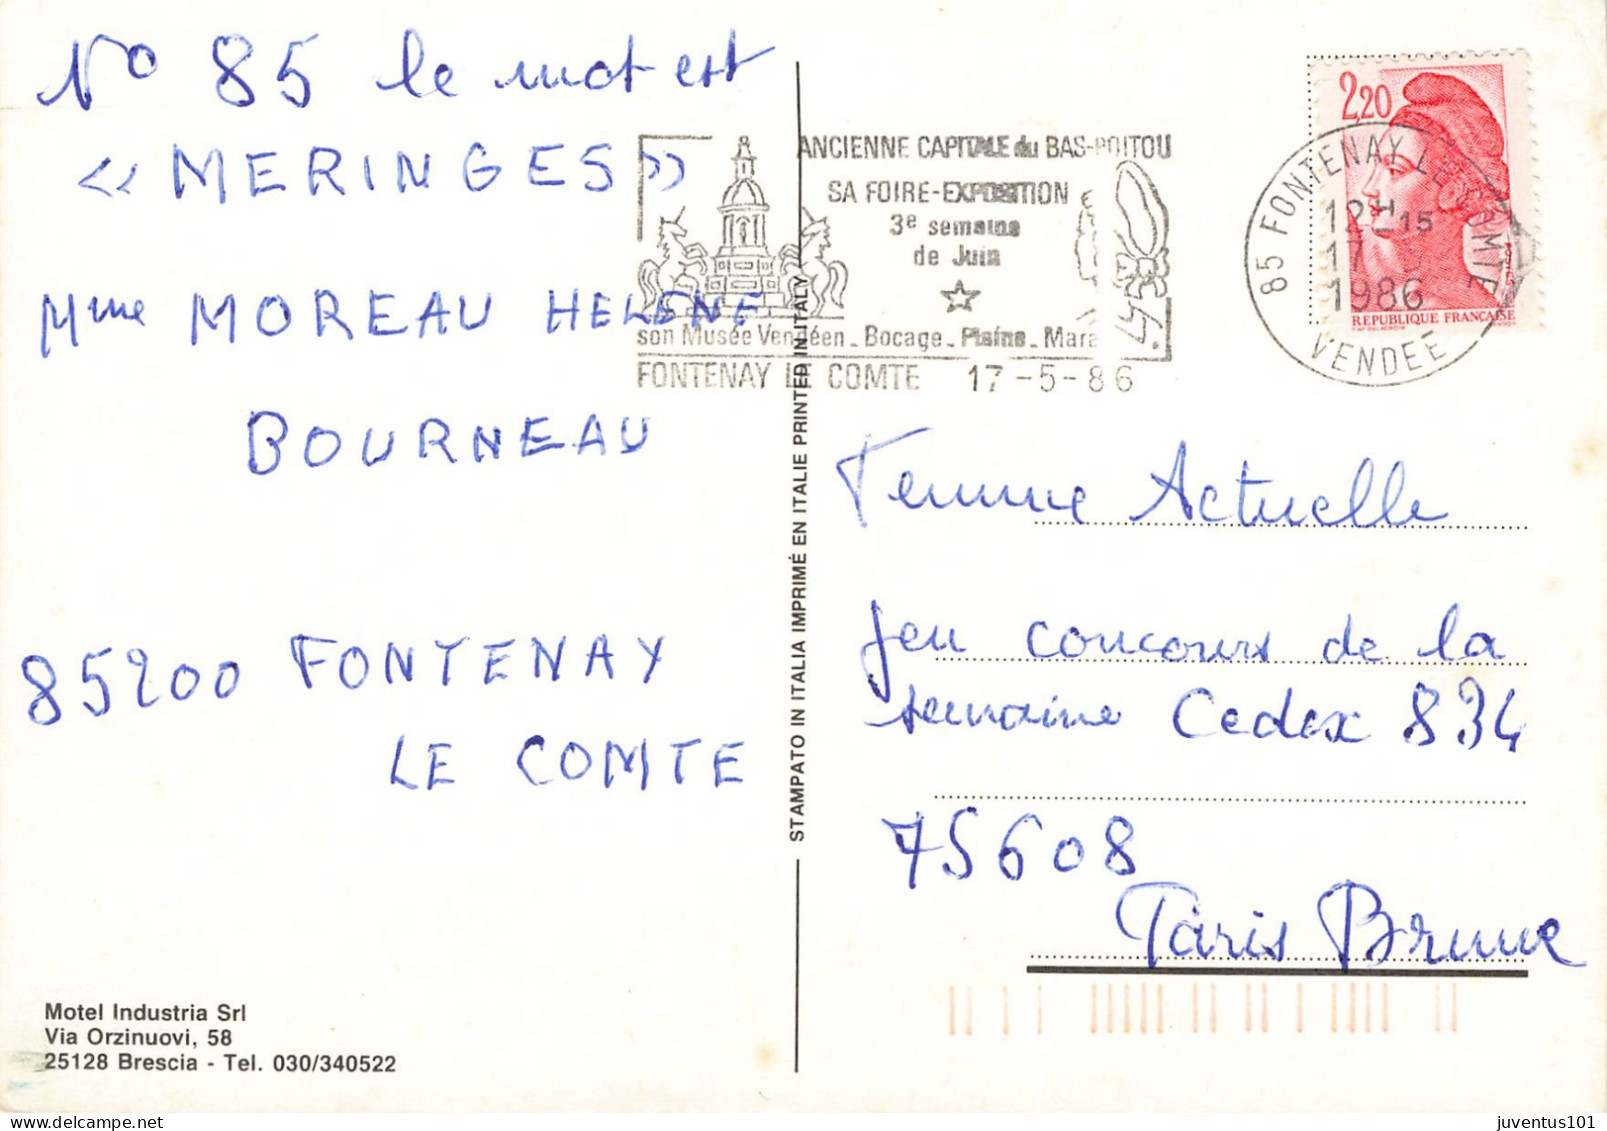 N° 85 le mot est
« MERINGES »
Mme MOREAU HELENE
BOURNEAU
85200 FONTENAY
LE COMTE
Motel Industria Srl
Via Orzinuovi, 58
25128 Brescia - Tel. 030/340522
STAMPATO IN ITALIA IMPRIMÉ EN ITALIE PRINTED IN ITALY
ANCIENNE CAPITALE du BAS-POITOU
SA FOIRE-EXPOSITION
3e semaine
de Juin
son Musée Vendéen_Bocage_Plaine_Mara
FONTENAY LE COMTE 17-5-86
2,20
REPUBLIQUE FRANCAISE
85 FONTENAY LE COMTE
12H15
17
1986
VENDEE
Femme Actuelle
Jeu concours de la
semaine Cedex 834
75608
Paris Brune
juventus101